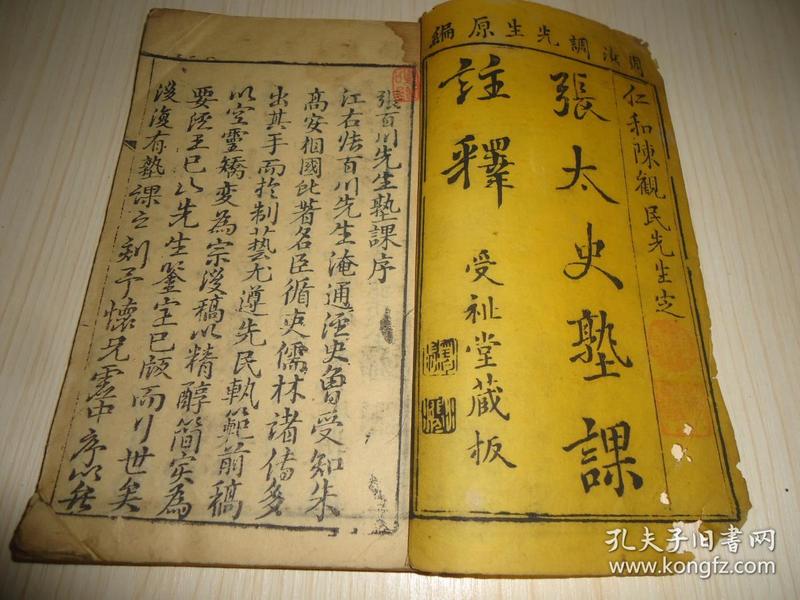 調先生原編
仁和陳觀民先生定
張太史塾課
註釋
受祉堂蔵板
張百川先生塾課序
江右張百川先生淹通経史曾受知朱
高安相國此著名臣循吏儒林諸傳多
出其手而於制藝尤遵先民執範前稿
以空靈矯變為宗後稿以精醇簡實為
要陸王已以先生鑒定已版而行世矣
後復有塾課之刻予懷兄雲中序以
孔夫子旧书网
www.kongfz.com